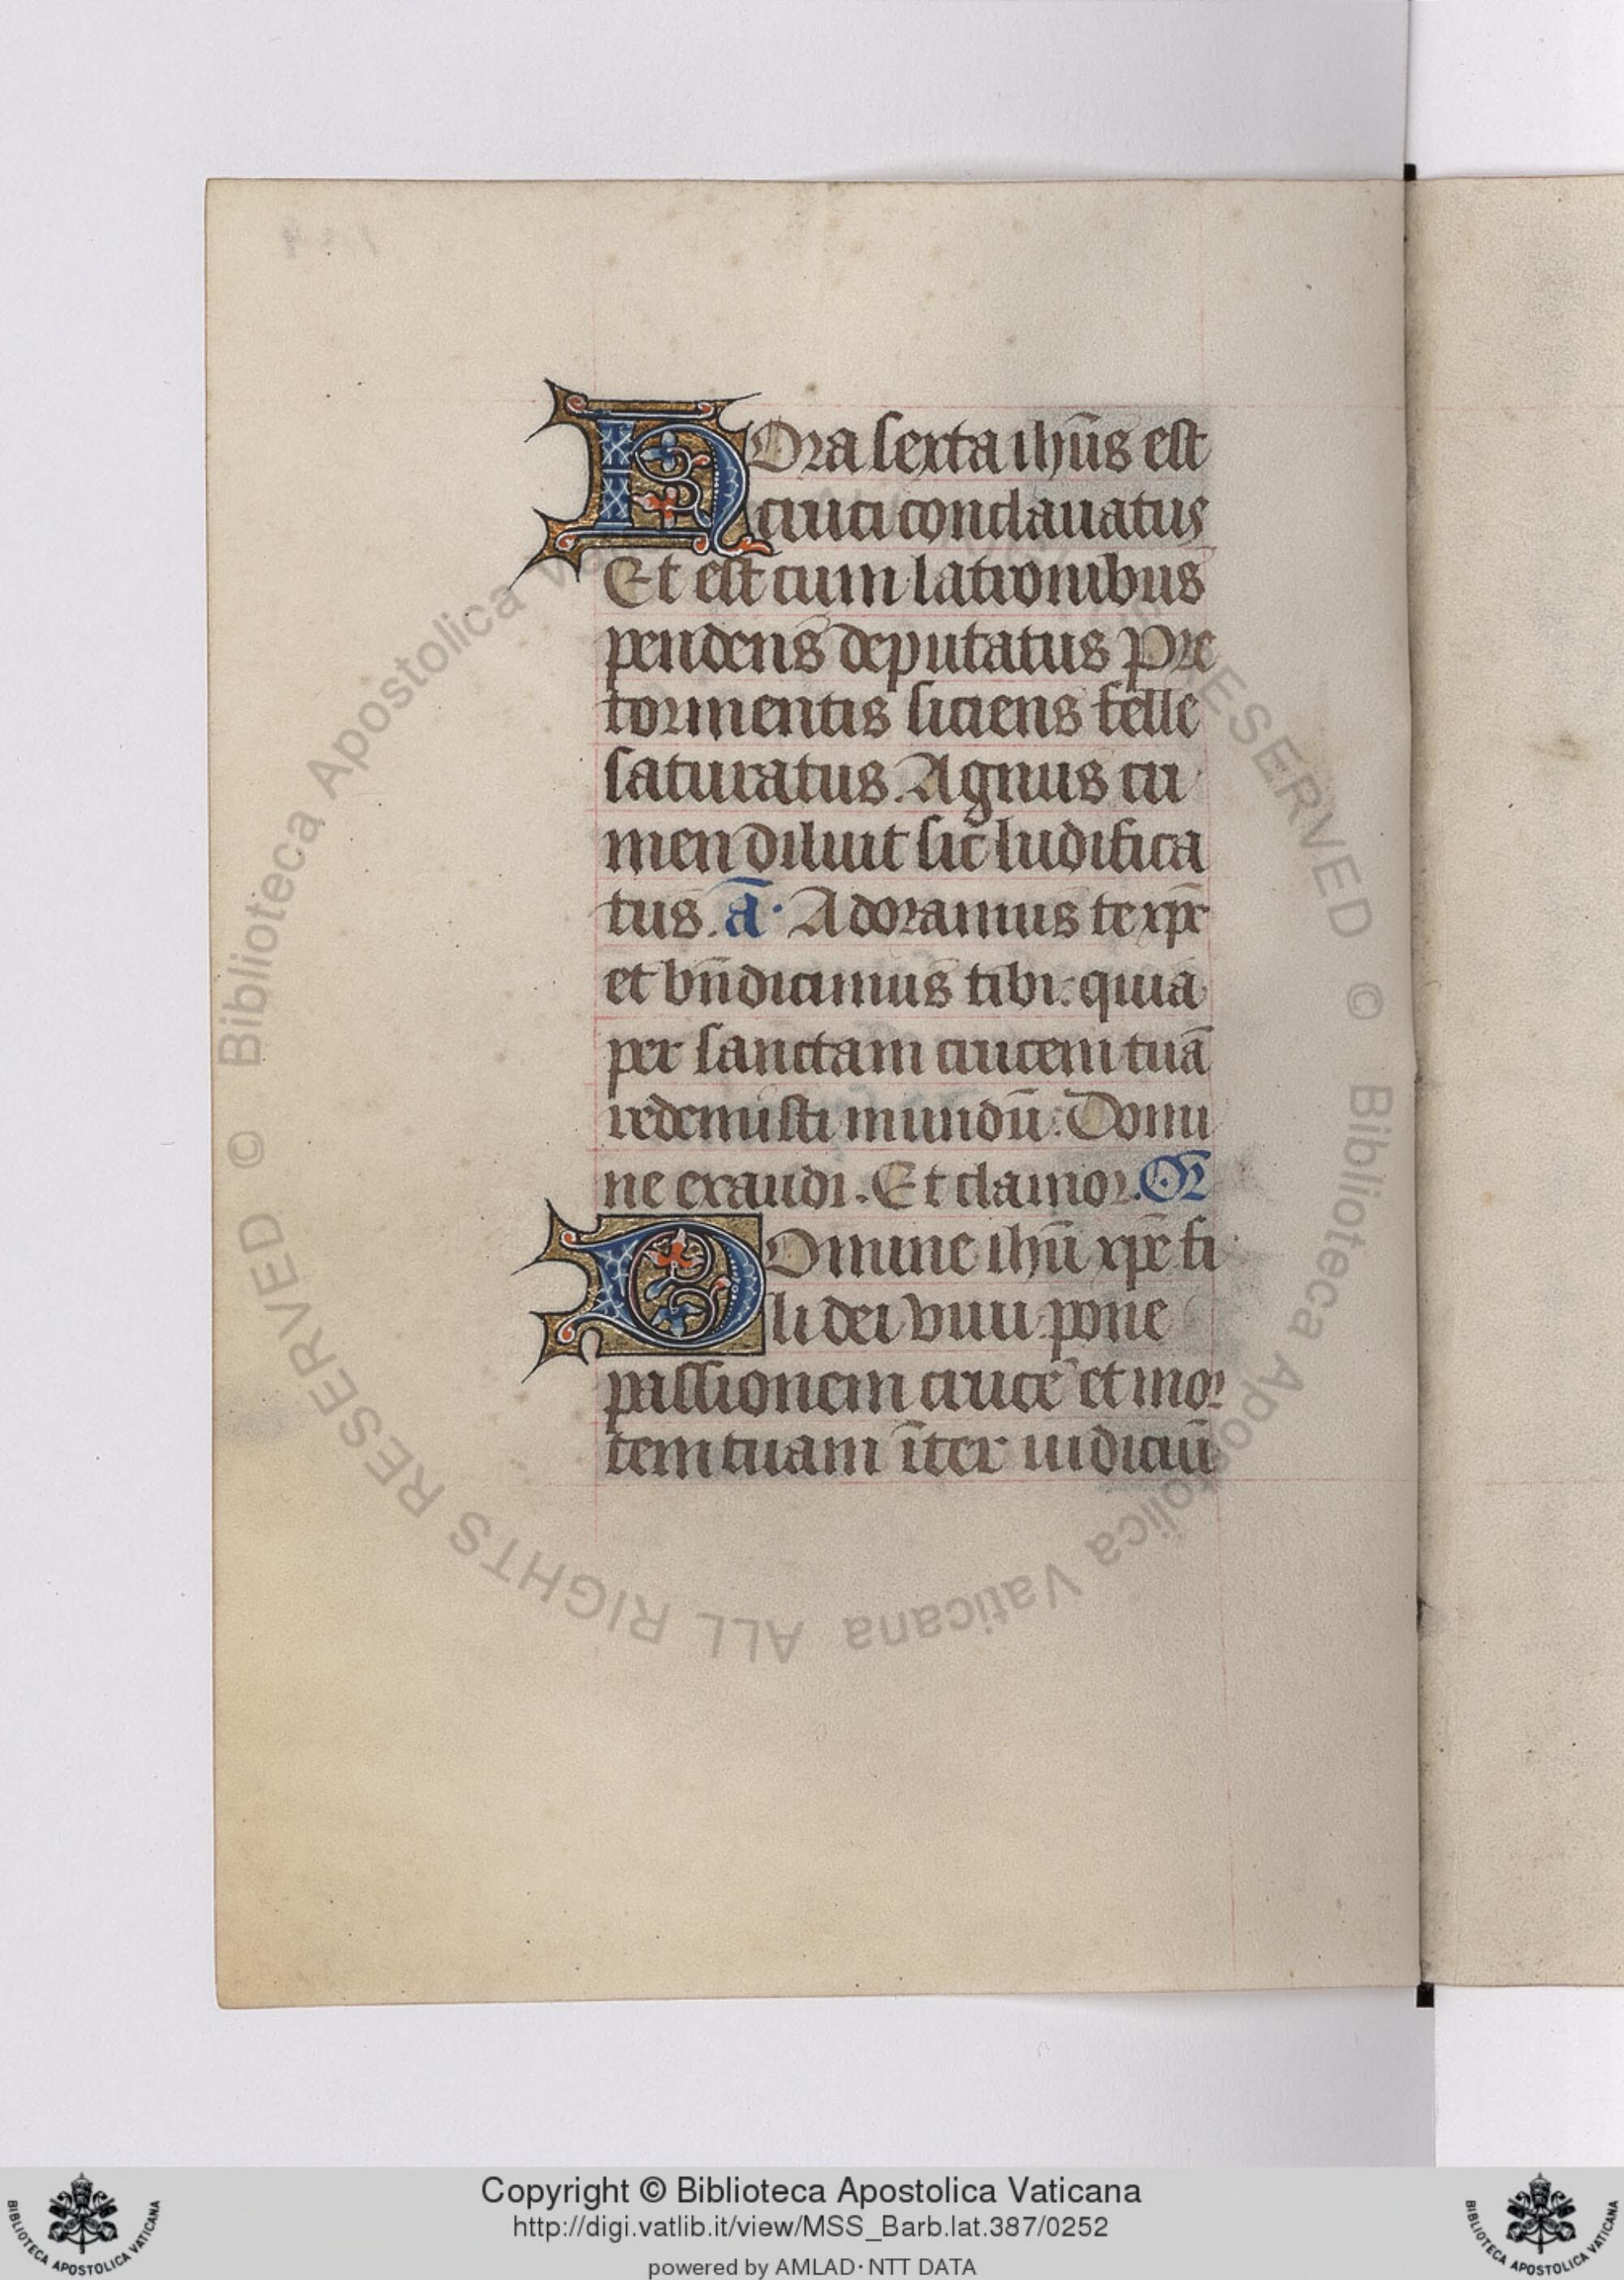 HOra sexta ihūs est
cruci conclauatus
Et est cum latronibus
pendens deputatus Pre
tormentis siciens felle
saturatus. Agnus cri
men diluit sic ludifica
tus. ā· Adoramus te xp̄e
et bn̄dicimus tibi: quia
per sanctam crucem tuā
redemisti mundū: Domi
ne exaudi. Et clamor. Or
DOmine ihū xp̄e fi
li dei viui pone
passionem crucē et mor
tem tuam īter iudiciū
© Biblioteca Apostolica Vaticana ALL RIGHTS RESERVED © Biblioteca Apostolica Vaticana ALL RIGHTS RESERVED
Copyright © Biblioteca Apostolica Vaticana
http://digi.vatlib.it/view/MSS_Barb.lat.387/0252
powered by AMLAD·NTT DATA
BIBLIOTECA APOSTOLICA VATICANA
BIBLIOTECA APOSTOLICA VATICANA